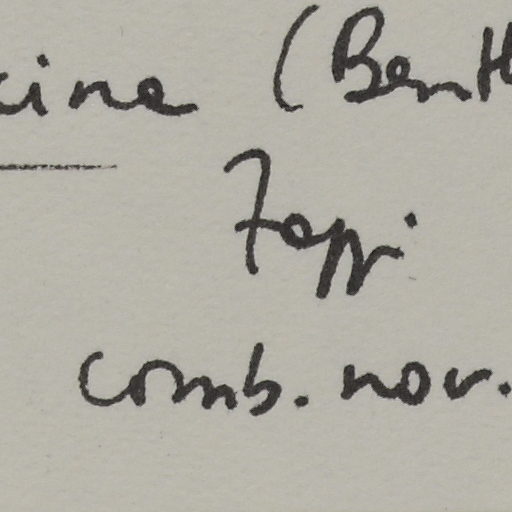 cina (Benth
Zappi
comb. nov.